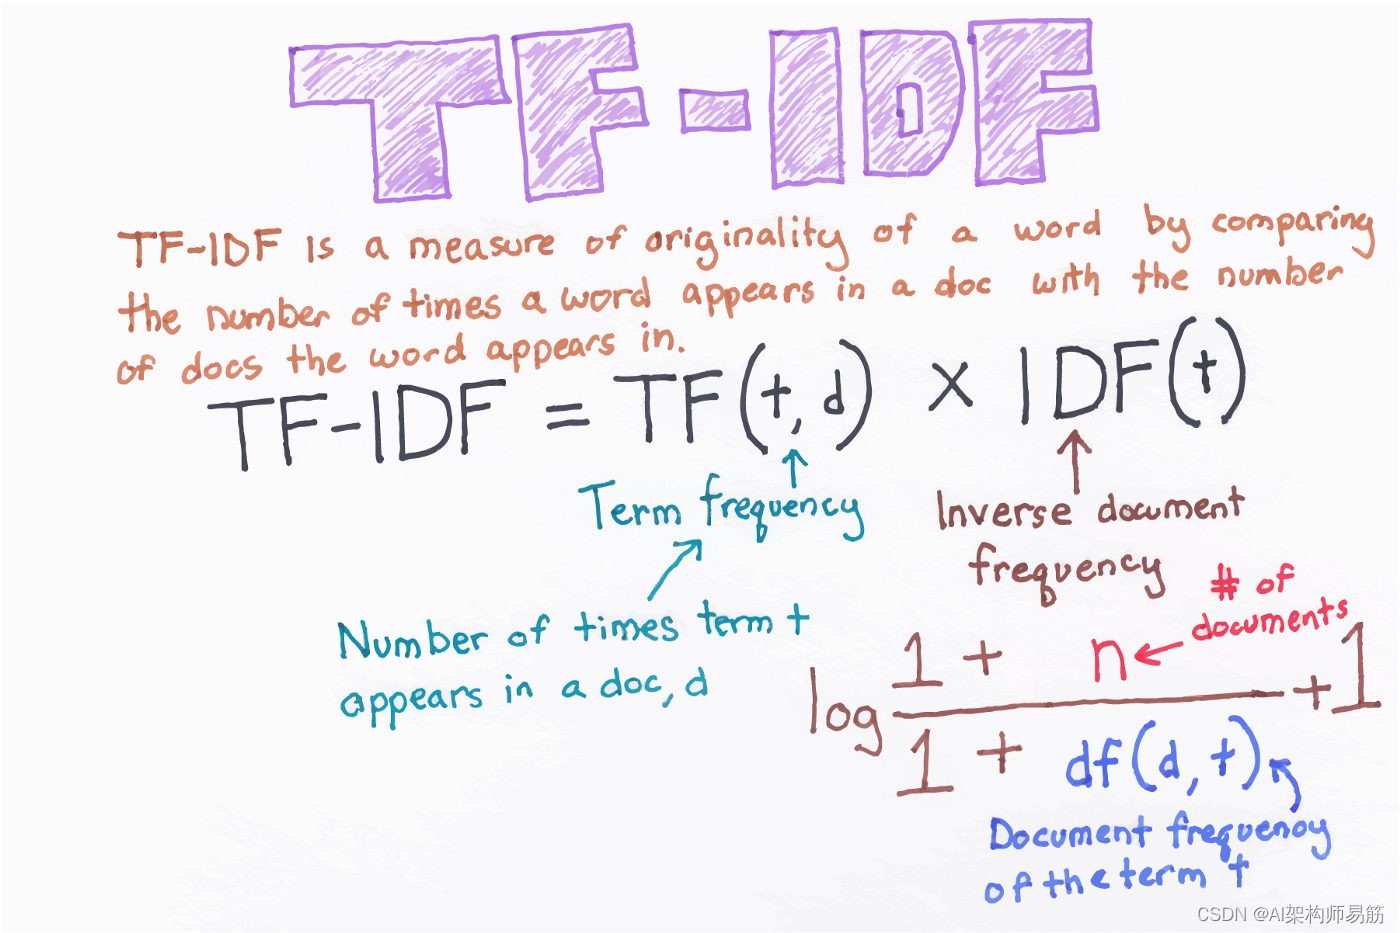 TF-IDF
TF-IDF is a measure of originality of a word by comparing
the number of times a word appears in a doc with the number
of docs the word appears in.
TF-IDF = TF(t, d) × IDF(t)
Term frequency
Inverse document
frequency
Number of times term t
appears in a doc, d
# of
documents
1 + n
log + 1
1 + df(d, t)
Document frequency
of the term t
CSDN @AI架构师易筋